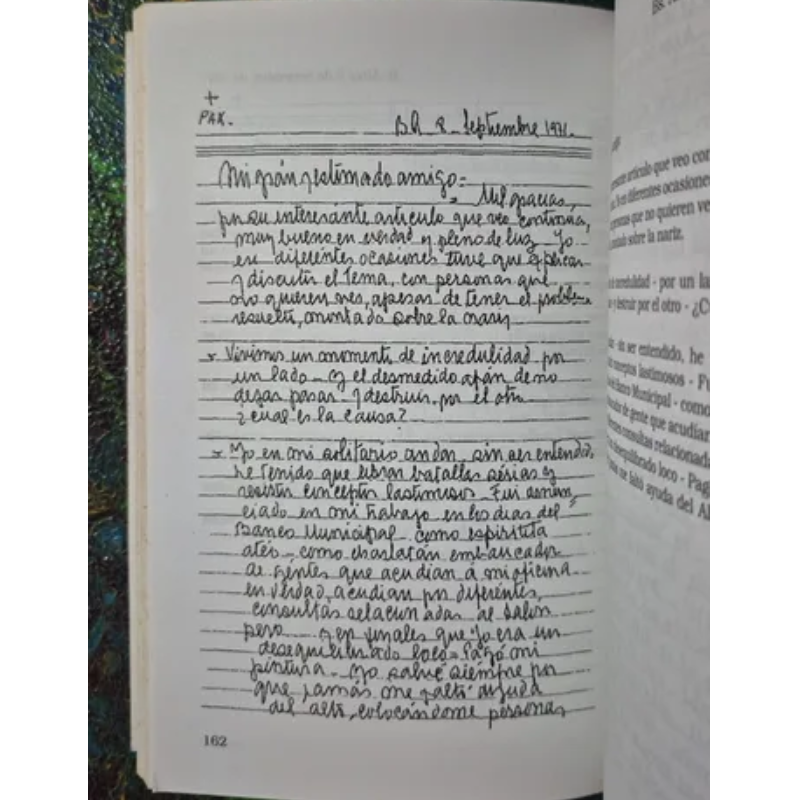 +
PAX.
BA 8 - Septiembre 1971.
Mi grán y estimado amigo =
Mil gracias,
por su interesánte artículo que veo continua,
muy bueno en verdad y pleno de luz Yo
en diferéntes ocasiones tuve que aplicar
y discutir el Tema, con personas que
no quieren ver, apesar de tener el problema
resuelto, montado sobre la nariz
x Vivimos un momento de incredulidad por
un lado - y el desmedido afán de no
dejar pasar - y destruir por el otro
¿cual es la causa?
x Yo en mi solitario andar, sin ser entendido,
he tenido que librar batallas sérias y
resistir conceptos lastimosos - Fui denun
ciado en mi trabajo en los dias del
Banco Municipal - como espiritista
ateo - como charlatán embaucador
de géntes que acudian á mi oficina
en verdad, acudian por diferéntes,
consultas relacionadas al
pero y que Yo era un
desequilibrado loco = Pagó mi
pintura - Yo salvé siempre por
que jamás me faltó ayuda
del alto, colocándome personas
162
resente articulo que veo con
s. Yo en diferentes ocasiones
personas que no quieren ve
ontado sobre la nariz.
de incredulidad - por un la
r y destruir por el otro - ¿C
sin ser entendido, he
conceptos lastimosos - Fu
del Banco Municipal - como
de gente que acudian
consultas relacionada
desequilibrado loco - Pag
me faltó ayuda del Al